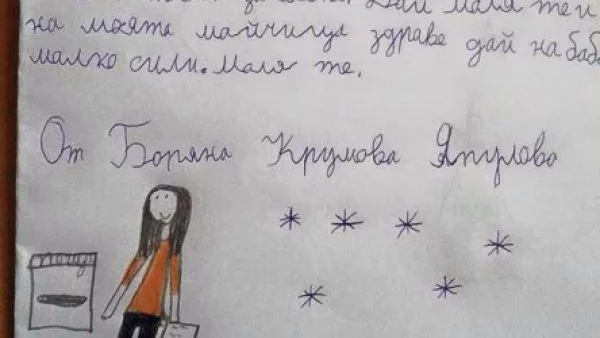 Дай моля те и
на моята майчица здраве дай на баб
малко сили. Моля те.
От Боряна Крумова Япулова